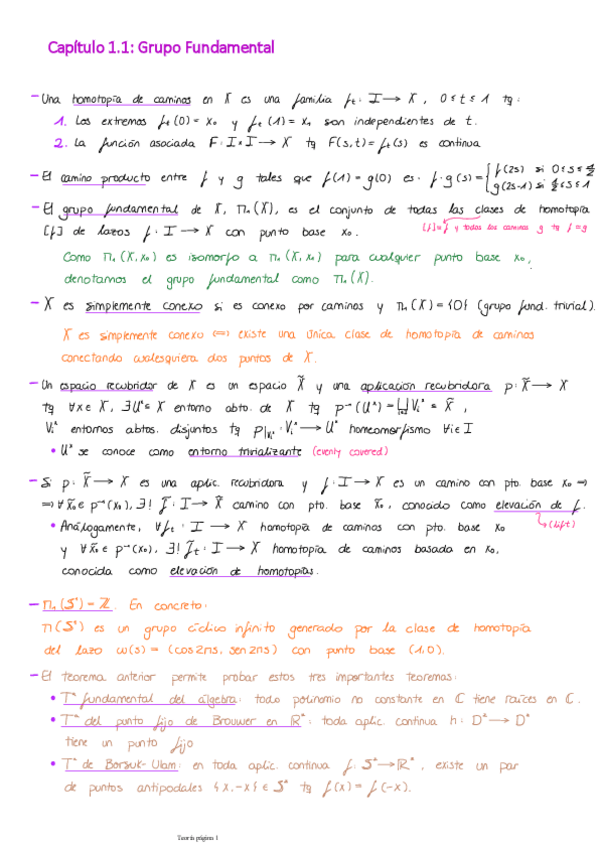 Capítulo 1.1: Grupo Fundamental
- Una homotopía de caminos en X es una familia f_t: I → X, 0 ≤ t ≤ 1 tq:
1. Los extremos f_t(0) = x₀ y f_t(1) = x₁ son independientes de t.
2. La función asociada F: I×I → X tq F(s,t) = f_t(s) es continua
- El camino producto entre f y g tales que f(1) = g(0) es f·g(s) = { f(2s) si 0 ≤ s ≤ ½
g(2s-1) si ½ ≤ s ≤ 1
- El grupo fundamental de X, π₁(X), es el conjunto de todas las clases de homotopía
[f] de lazos f: I → X con punto base x₀. [f] = f y todos los caminos g tq f ≃ g
Como π₁(X, x₀) es isomorfo a π₁(X, x₀) para cualquier punto base x₀,
denotamos el grupo fundamental como π₁(X).
- X es simplemente conexo si es conexo por caminos y π₁(X) = {0} (grupo fund. trivial).
X es simplemente conexo ⟺ existe una única clase de homotopía de caminos
conectando cualesquiera dos puntos de X.
- Un espacio recubridor de X es un espacio X̃ y una aplicación recubridora p: X̃ → X
tq ∀x ∈ X, ∃ Uˣ ⊆ X entorno abto. de X tq p⁻¹(Uˣ) = ⨆ Vᵢˣ ⊆ X̃,
Vᵢˣ entornos abtos. disjuntos tq p|Vᵢˣ: Vᵢˣ → Uˣ homeomorfismo ∀i ∈ I
• Uˣ se conoce como entorno trivializante (evenly covered)
- Si p: X̃ → X es una aplic. recubridora y f: I → X es un camino con pto. base x₀ ⟹
⟹ ∀x̃₀ ∈ p⁻¹(x₀), ∃! f̃: I → X camino con pto. base x̃₀, conocido como elevación de f.
↳ (lift)
• Análogamente, ∀f_t: I → X homotopía de caminos con pto. base x₀
y ∀x̃₀ ∈ p⁻¹(x₀), ∃! f̃_t: I → X homotopía de caminos basada en x̃₀,
conocida como elevación de homotopías.
- π₁(S¹) = ℤ. En concreto:
π(S¹) es un grupo cíclico infinito generado por la clase de homotopía
del lazo ω(s) = (cos 2πs, sen 2πs) con punto base (1,0).
- El teorema anterior permite probar estos tres importantes teoremas:
• Tª fundamental del álgebra: todo polinomio no constante en ℂ tiene raíces en ℂ.
• Tª del punto fijo de Brouwer en ℝ²: toda aplic. continua h: D² → D²
tiene un punto fijo
• Tª de Borsuk-Ulam: en toda aplic. continua f: S² → ℝ², existe un par
de puntos antipodales {x, -x} ∈ S² tq f(x) = f(-x).
Teoría página 1